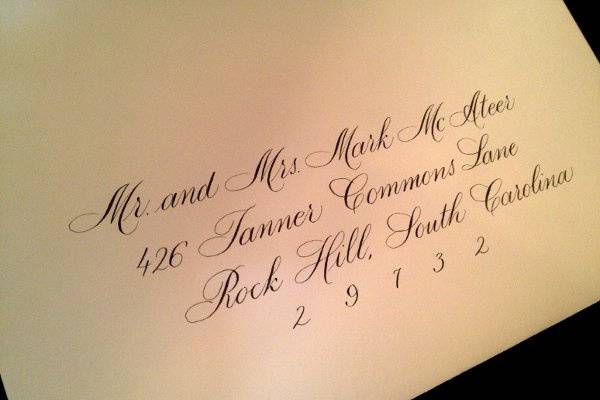 Mr. and Mrs. Mark McAteer
426 Tanner Commons Lane
Rock Hill, South Carolina
2 9 7 3 2